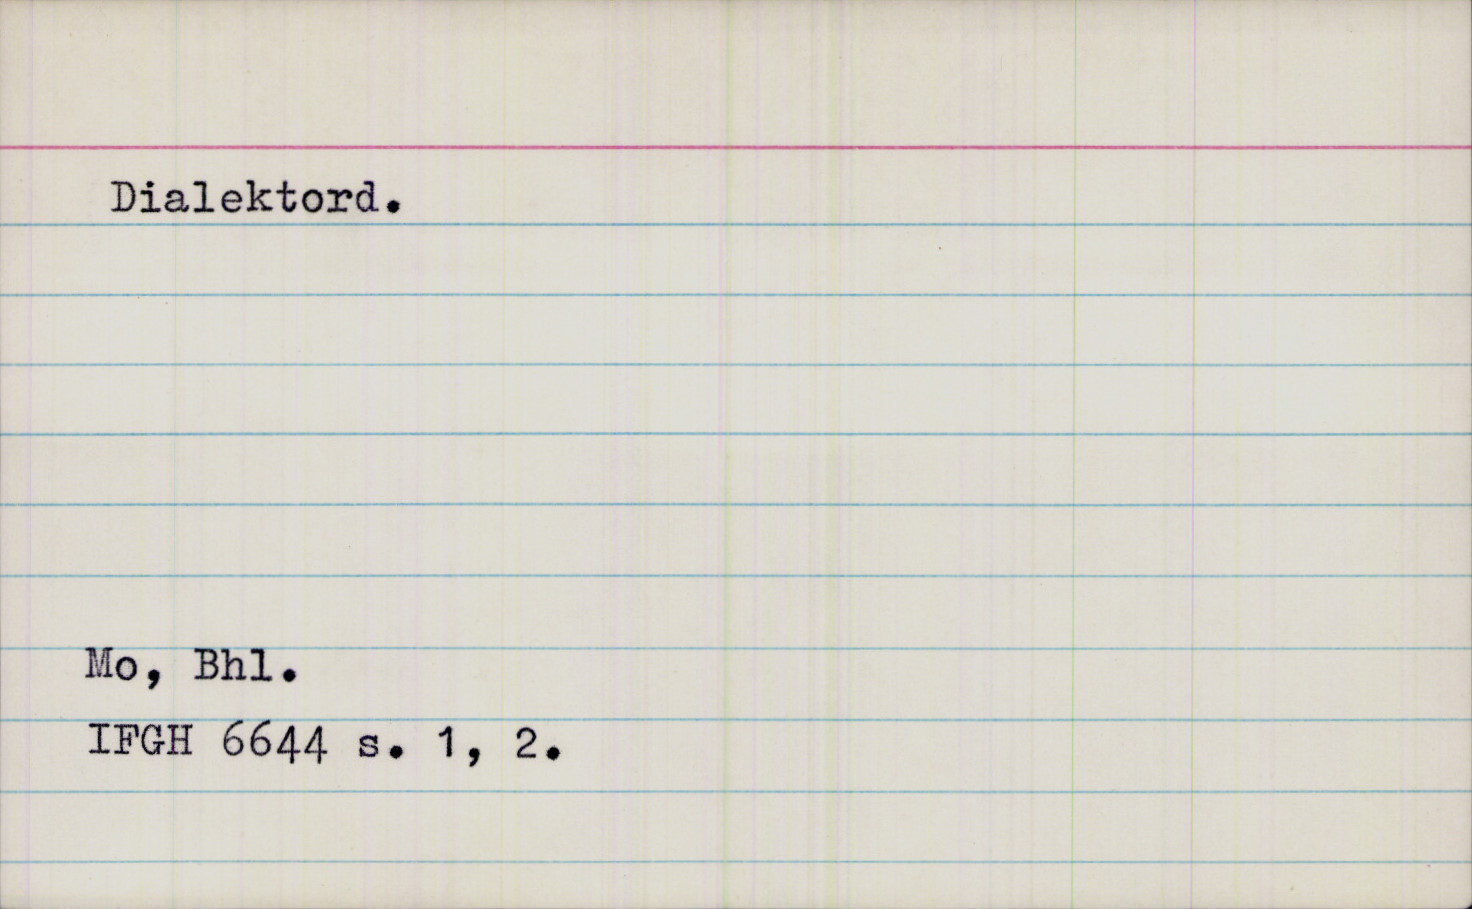 Dialektord.
Mo, Bhl.
IFGH 6644 s. 1, 2.